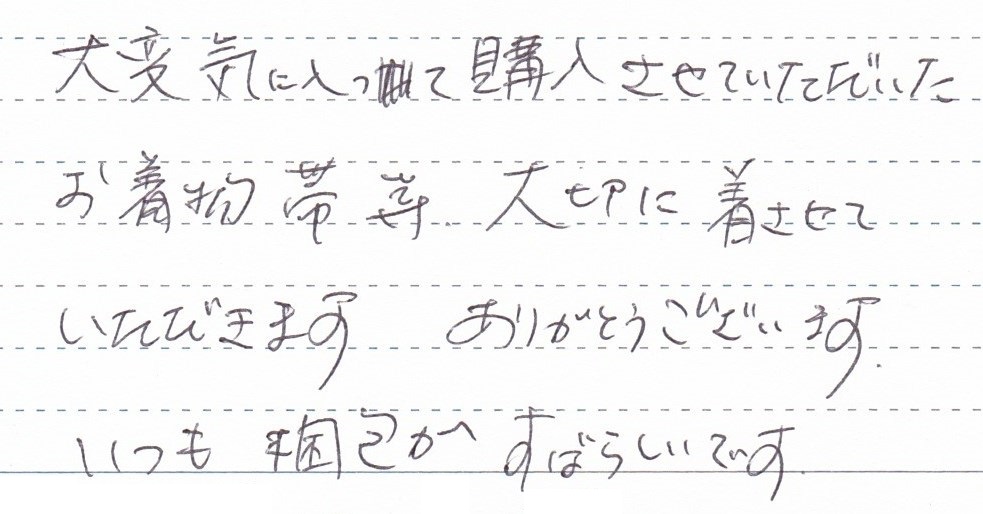 大変気に入って購入させていただいた
お着物帯等 大切に着させて
いただきます ありがとうございます.
いつも梱包がすばらしいです.